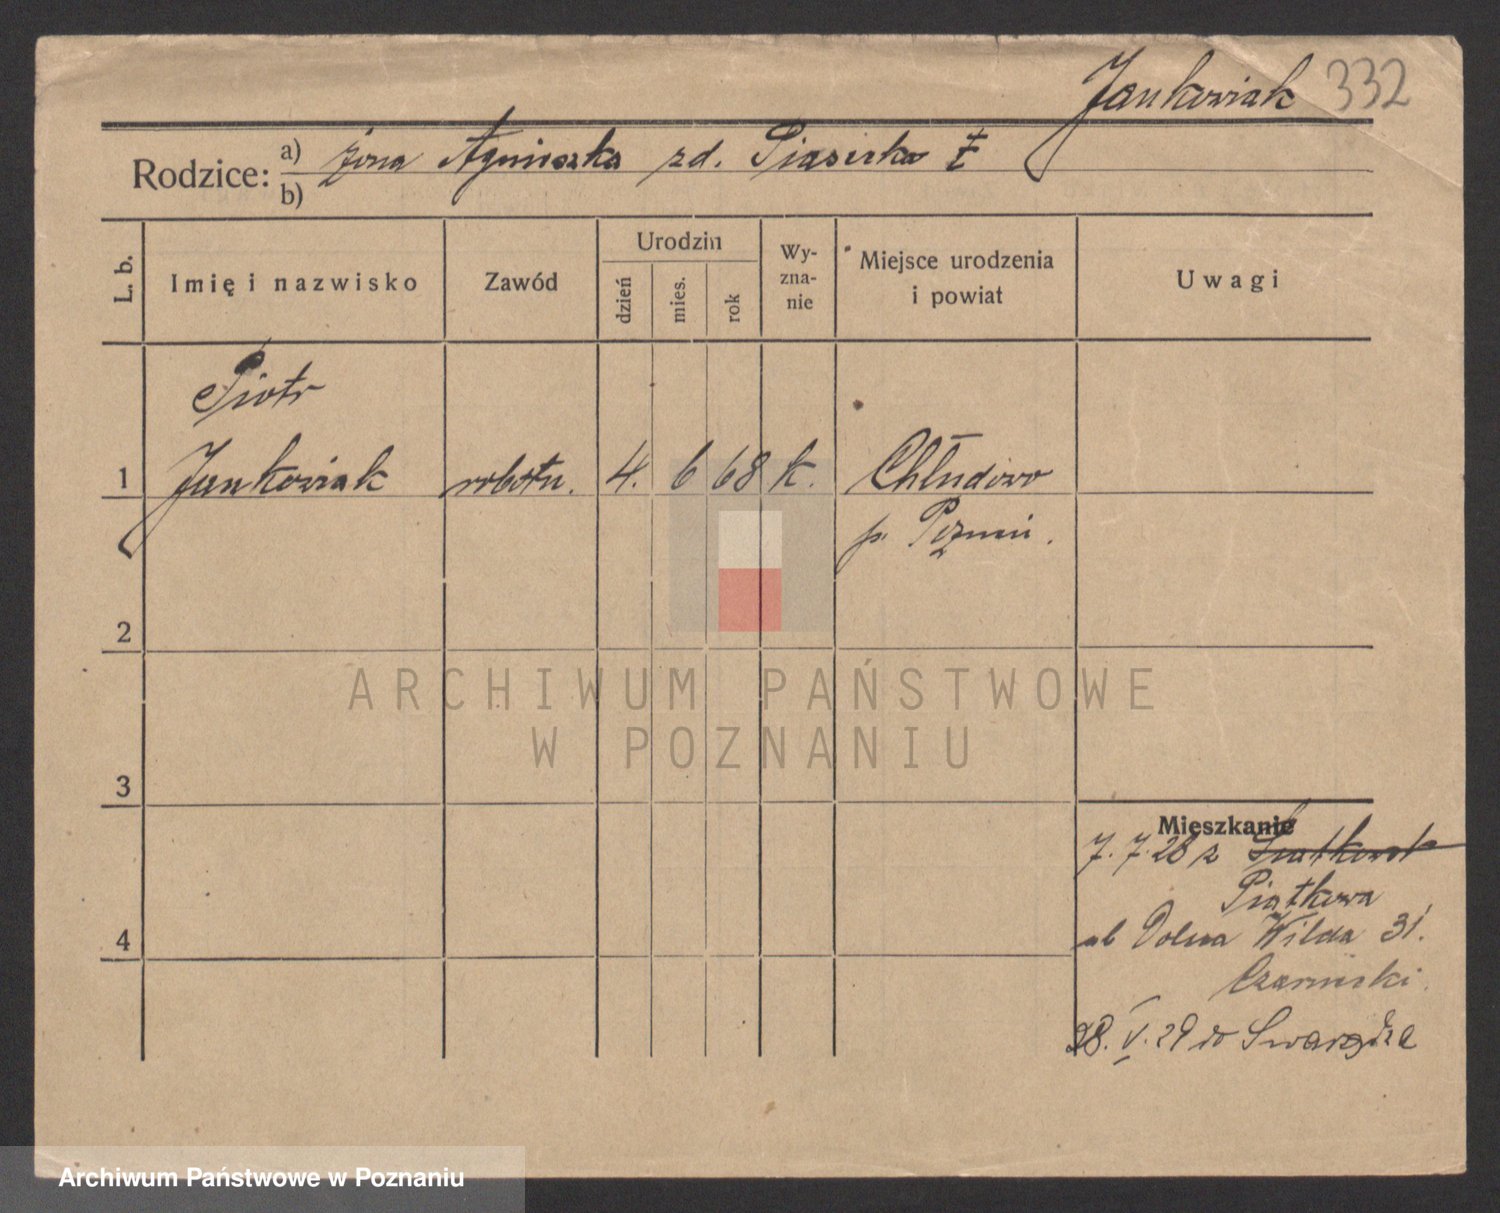 Jankowiak 332
Rodzice: a) żona Agnieszka zd. Piasecka
b)
L. b.
Imię i nazwisko
Zawód
Urodzin
dzień
mies.
rok
Wy-
zna-
nie
Miejsce urodzenia
i powiat
Uwagi
Piotr
1 Jankowiak robotn. 4. 6 68 k. Chłudowo
p. Pozn
2
3
4
Mieszkanie
7. 7. 28 z
Piątkowa
ul Dolna Wilda 31.
28. V. 29 do Swarzędza
ARCHIWUM PAŃSTWOWE
W POZNANIU
Archiwum Państwowe w Poznaniu